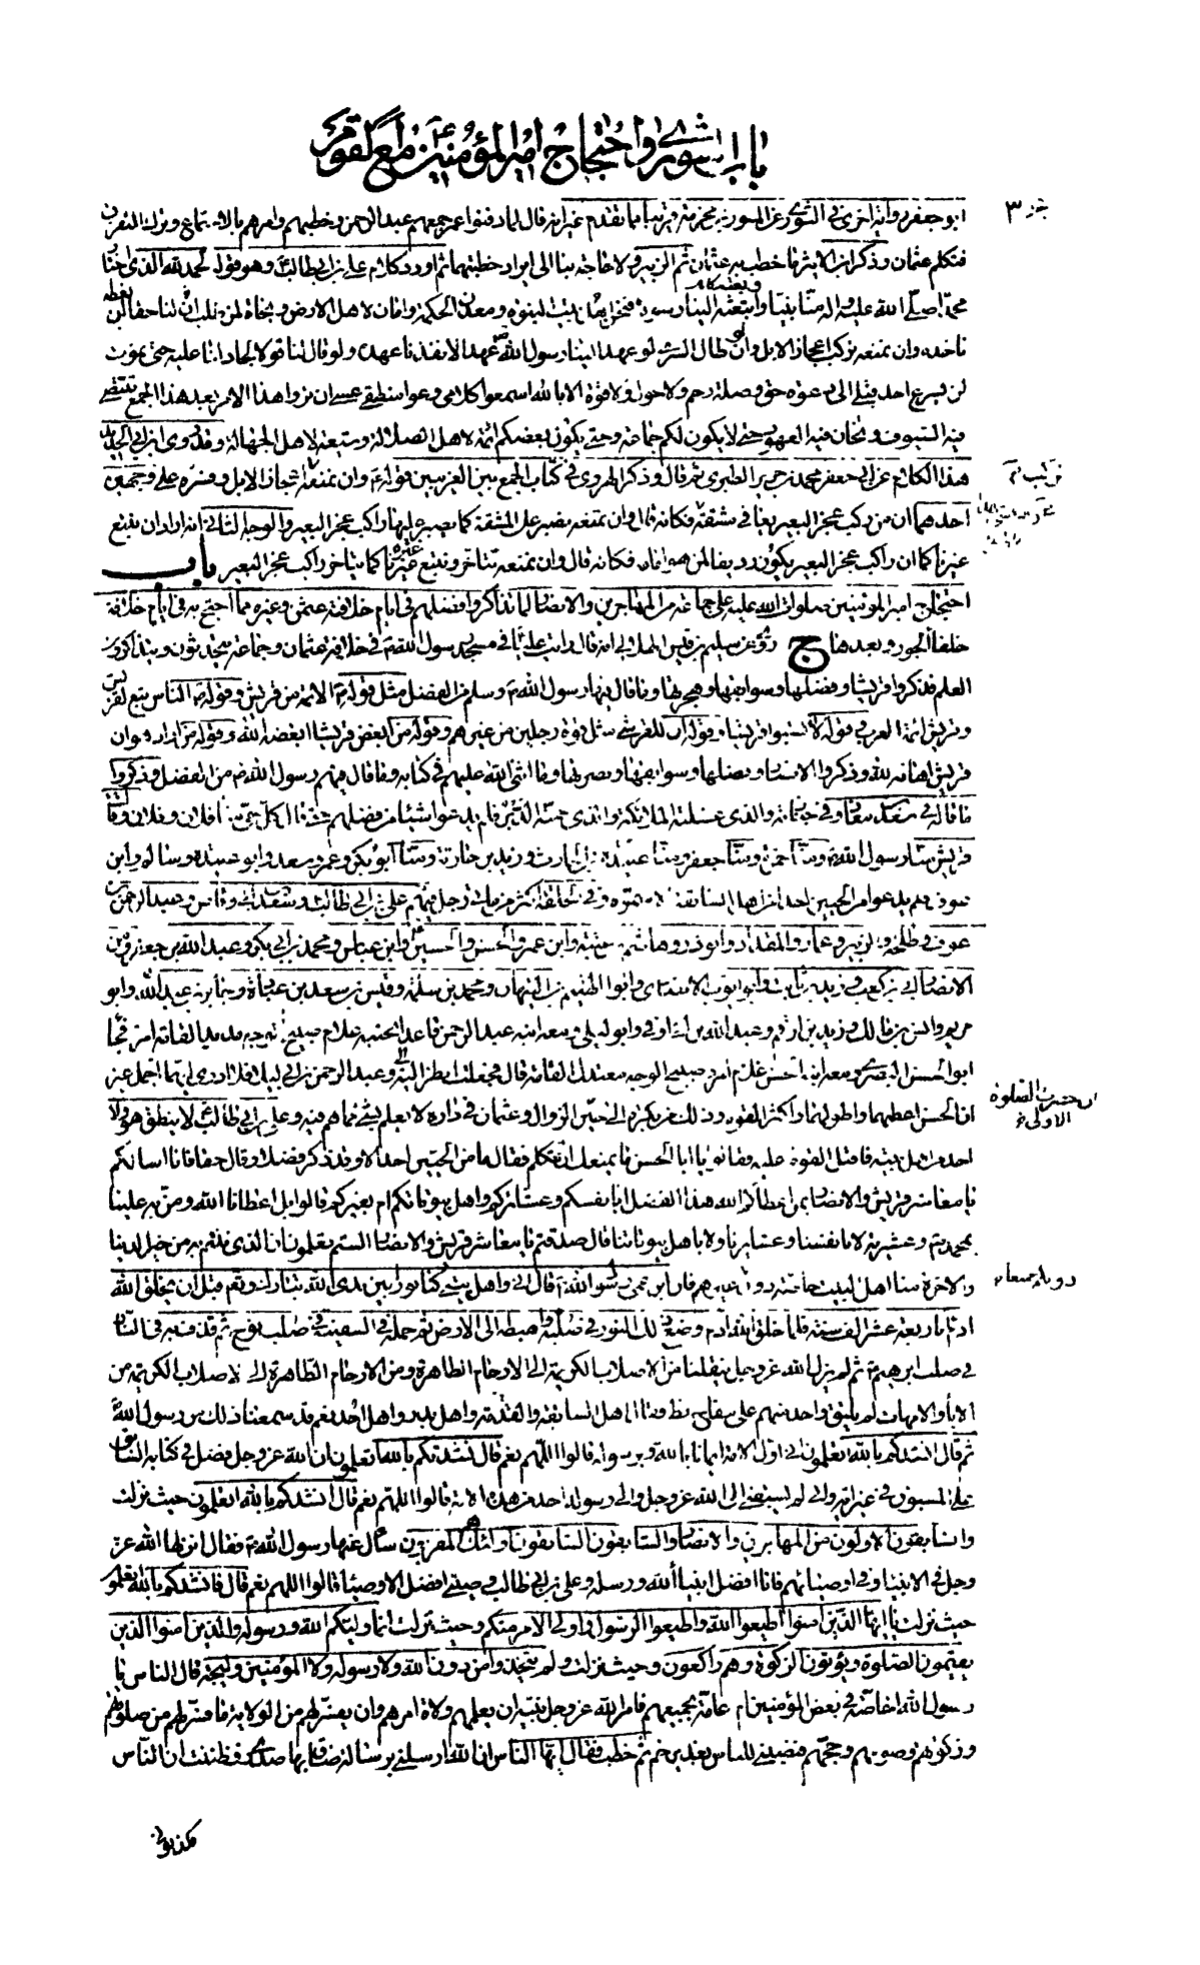 باب الشورى واحتجاج امير المؤمنين على القوم
ابو جعفر رواية اخرى في الشورى عن المسور بن مخرمة قريبا مما تقدم غير انه قال لما دفنوا عمر جمعهم عبد الرحمن وخطبهم وامرهم بالاجتماع وترك التفرق
فتكلم عثمان وذكر ابن الاثير ما خطب به عثمان ثم الزبير ولا حاجة بنا الى ايراد خطبتهما ثم اورد كلام علي بن ابي طالب وهو قوله الحمد لله الذي اختار
محمدا صلى الله عليه واله منا نبيا وابتعثه الينا رسولا فنحن اهل بيت النبوة ومعدن الحكمة وامان لاهل الارض ونجاة لمن طلب ان لنا حقا ان نعطه
ناخذه وان نمنعه نركب اعجاز الابل وان طال السرى لو عهد الينا رسول الله عهدا لانفذنا عهده ولو قال لنا قولا لجادلنا عليه حتى نموت
لن يسرع احد قبلي الى دعوة حق وصلة رحم ولا حول ولا قوة الا بالله اسمعوا كلامي وعوا منطقي عسى ان تروا هذا الامر بعد هذا الجمع تنتضى
فيه السيوف وتخان فيه العهود حتى لا يكون لكم جماعة وحتى يكون بعضكم ائمة لاهل الضلالة وشيعة لاهل الجهالة وقد روى ابن ابي الحديد
هذا الكلام عن ابي جعفر محمد بن جرير الطبري ثم قال وذكر الهروي في كتاب الجمع بين الغريبين قوله وان نمنعه نركب اعجاز الابل وفسره على وجهين
احدهما ان من ركب عجز البعير يعاني مشقة فكانه قال وان نمنعه نصبر على المشقة كما يصبر عليها راكب عجز البعير والوجه الثاني انه اراد ان نتبع
غيرنا كما ان راكب عجز البعير يكون رديفا لمن هو امامه فكانه قال وان نمنعه نتاخر ونتبع غيرنا كما يتاخر راكب عجز البعير باب
احتجاج امير المؤمنين صلوات الله عليه على جماعة من المهاجرين والانصار لما تذاكروا فضلهم في ايام خلافة عثمن وغيره مما احتج به في ايام خلافة
خلفاء الجور وبعدها ج روى عن سليم بن قيس الهلالي انه قال رايت عليا في مسجد رسول الله في خلافة عثمان وجماعة يتحدثون ويتذاكرون
العلم فذكروا قريشا وفضلها وسوابقها وهجرتها وما قال فيها رسول الله وسلم من الفضل مثل قوله الائمة من قريش وقوله الناس تبع لقريش
وقريش ائمة العرب وقوله لا تسبوا قريشا وقوله ان للقرشي مثل قوة رجلين من غيرهم وقوله من ابغض قريشا ابغضه الله وقوله من اراد هوان
قريش اهانه الله وذكروا الانصار وفضلها وسوابقها ونصرتها وما اثنى الله عليهم في كتابه وما قال فيهم رسول الله من الفضل وذكروا
ما قاله في سعد بن معاذ وفي جنازته والذي غسلته الملائكة والذي حمته الدبر فلم يدعوا شيئا من فضلهم حتى قال كل حي منا فلان وفلان وقالت
قريش منا رسول الله ومنا حمزة ومنا جعفر ومنا عبيدة بن الحارث وزيد بن حارثة ومنا ابو بكر وعمر وسعد وابو عبيدة وسالم وابن
عوف فلم يدعوا من الحيين احدا من اهل السابقة الا سموه وفي الحلقة اكثر من مائتي رجل فيهم علي بن ابي طالب وسعد بن ابي وقاص وعبد الرحمن بن
عوف وطلحة والزبير وعمار والمقداد وابو ذر وهاشم بن عتبة وابن عمر والحسن والحسين وابن عباس ومحمد بن ابي بكر وعبد الله بن جعفر ومن
الانصار ابي بن كعب وزيد بن ثابت وابو ايوب الانصاري وابو الهيثم بن التيهان ومحمد بن سلمة وقيس بن سعد بن عبادة وجابر بن عبد الله وابو
مريم وانس بن مالك وزيد بن ارقم وعبد الله بن ابي اوفى وابو ليلى ومعه ابنه عبد الرحمن قاعد بجنبه غلام صبيح الوجه مديد القامة امرد فجاء
ابو الحسن البصري ومعه ابنه الحسن غلام امرد صبيح الوجه معتدل القامة قال فجعلت انظر اليه والى عبد الرحمن بن ابي ليلى فلا ادري ايهما اجمل غير
ان الحسن اعظمهما واطولهما واكثر القوم وذلك من بكرة الى حين الزوال وعثمان في داره لا يعلم بشيء مما هم فيه وعلي بن ابي طالب لا ينطق هو ولا
احد من اهل بيته فاقبل القوم عليه فقالوا يا ابا الحسن ما يمنعك ان تتكلم فقال ما من الحيين احد الا وقد ذكر فضلا وقال حقا فانا اسالكم
يا معاشر قريش والانصار بمن اعطاكم الله هذا الفضل ابانفسكم وعشائركم واهل بيوتاتكم ام بغيركم قالوا بل اعطانا الله ومن به علينا
بمحمد وعشيرته لا بانفسنا وعشائرنا ولا باهل بيوتاتنا قال صدقتم يا معاشر قريش والانصار الستم تعلمون ان الذي نلتم به من خير الدنيا
والاخرة منا اهل البيت خاصة دون غيرهم فان ابن عمي رسول الله قال اني واهل بيتي كنا نورا بين يدي الله تبارك وتعالى قبل ان يخلق الله
ادم باربعة عشر الف سنة فلما خلق الله ادم وضع ذلك النور في صلبه واهبطه الى الارض ثم حمله في السفينة في صلب نوح ثم قذف به في النار
في صلب ابرهيم ثم لم يزل الله عز وجل ينقلنا من الاصلاب الكريمة الى الارحام الطاهرة ومن الارحام الطاهرة الى الاصلاب الكريمة من
الاباء والامهات لم يلتق واحد منهم على سفاح قط فقال اهل السابقة والقدمة واهل بدر واهل احد نعم قد سمعنا ذلك من رسول الله
ثم قال انشدكم بالله اتعلمون اني اول الامة ايمانا بالله وبرسوله قالوا اللهم نعم قال نشدتكم بالله اتعلمون ان الله عز وجل فضل في كتابه السابق
على المسبوق في غير اية واني لم يسبقني الى الله عز وجل والى رسوله احد من هذه الامة قالوا اللهم نعم قال انشدكم بالله اتعلمون حيث نزلت
والسابقون الاولون من المهاجرين والانصار والسابقون السابقون اولئك المقربون سئل عنها رسول الله فقال انزلها الله عز
وجل في الانبياء وفي اوصيائهم فانا افضل انبياء الله ورسله وعلي بن ابي طالب وصيي افضل الاوصياء قالوا اللهم نعم قال فانشدكم بالله اتعلمون
حيث نزلت يا ايها الذين امنوا اطيعوا الله واطيعوا الرسول واولي الامر منكم وحيث نزلت انما وليكم الله ورسوله والذين امنوا الذين
يقيمون الصلوة ويؤتون الزكوة وهم راكعون وحيث نزلت ولم يتخذوا من دون الله ولا رسوله ولا المؤمنين وليجة قال الناس يا
رسول الله اخاصة في بعض المؤمنين ام عامة بجميعهم فامر الله عز وجل نبيه ان يعلمهم ولاة امرهم وان يفسر لهم من الولاية ما فسر لهم من صلوتهم
وزكوتهم وصومهم وحجهم فنصبني للناس بغدير خم ثم خطب فقال ايها الناس ان الله ارسلني برسالة ضاق بها صدري وظننت ان الناس
مكذبوني
ان حضرت الصلوة
الاولى